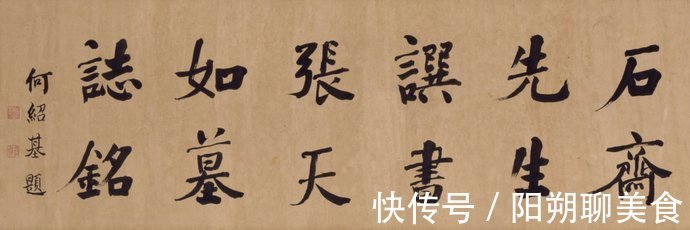 石齋
先生
譔書
張天
如墓
誌銘
何紹基題
快传号 / 阳朔聊美食